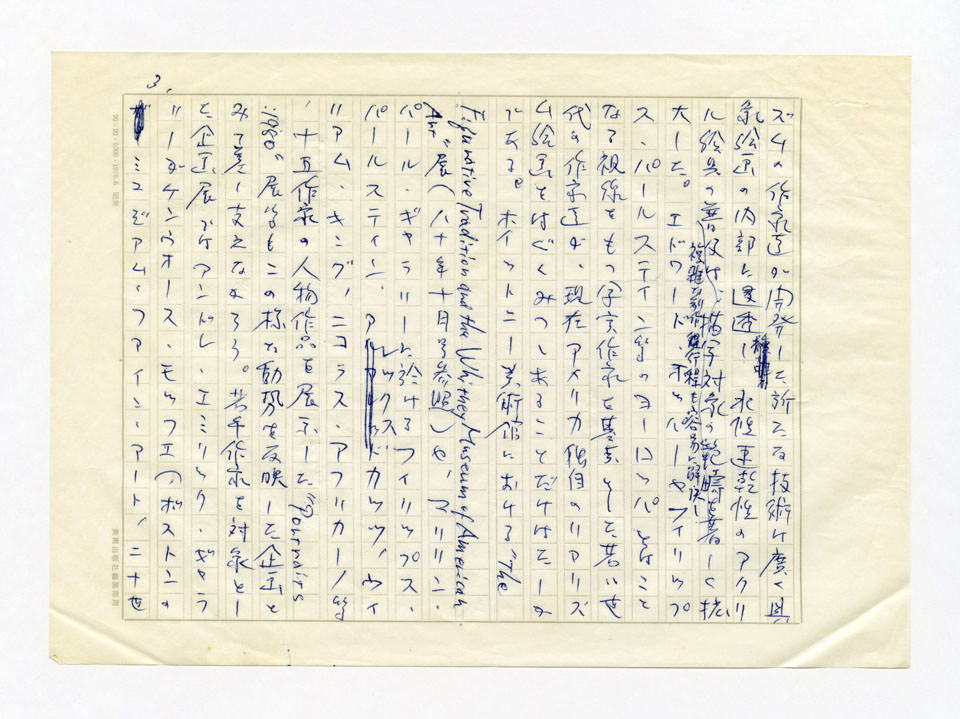 3.
ズムの作家達が開発した新たな技術は広く具
象絵画の内部に浸透し 水性速乾性のアクリ
ル絵具の普及は、複雑な制作進行程も容易に解決し、描写対象の範疇を著しく拡
大した。エドワード・ホッパーやフィリップ
ス・パールスティン等のヨーロッパとはこと
なる視線をもつ写実作家を基点とした若い世
代の作家達が、現在アメリカ独自のリアリズ
ム絵画をはぐくみつつあることだけはたしか
である。ホイットニー美術館における"The
Figurative Tradition and the Whitney Museum of American
Art"展(八十年十月号参照)や、マリリン・
パール・ギャラリーに於けるフィリップス・
パールスティン、アレックスカッツ、ウィ
リアム・キング、ニコラス・アフリカーノ等
、十五作家の人物作品を展示した"Portraits
:1980"展等もこの様な動勢を反映した企画と
みて差し支えなかろう。若手作家を対象とし
た企画展ではアンドレ・エミリック・ギャラ
リーがケンウォース・モッフェ(ボストンの
ミュゼアム・ファイン・アート、二十世
20×20・5000・1978.6 協和
美術出版社編集部用